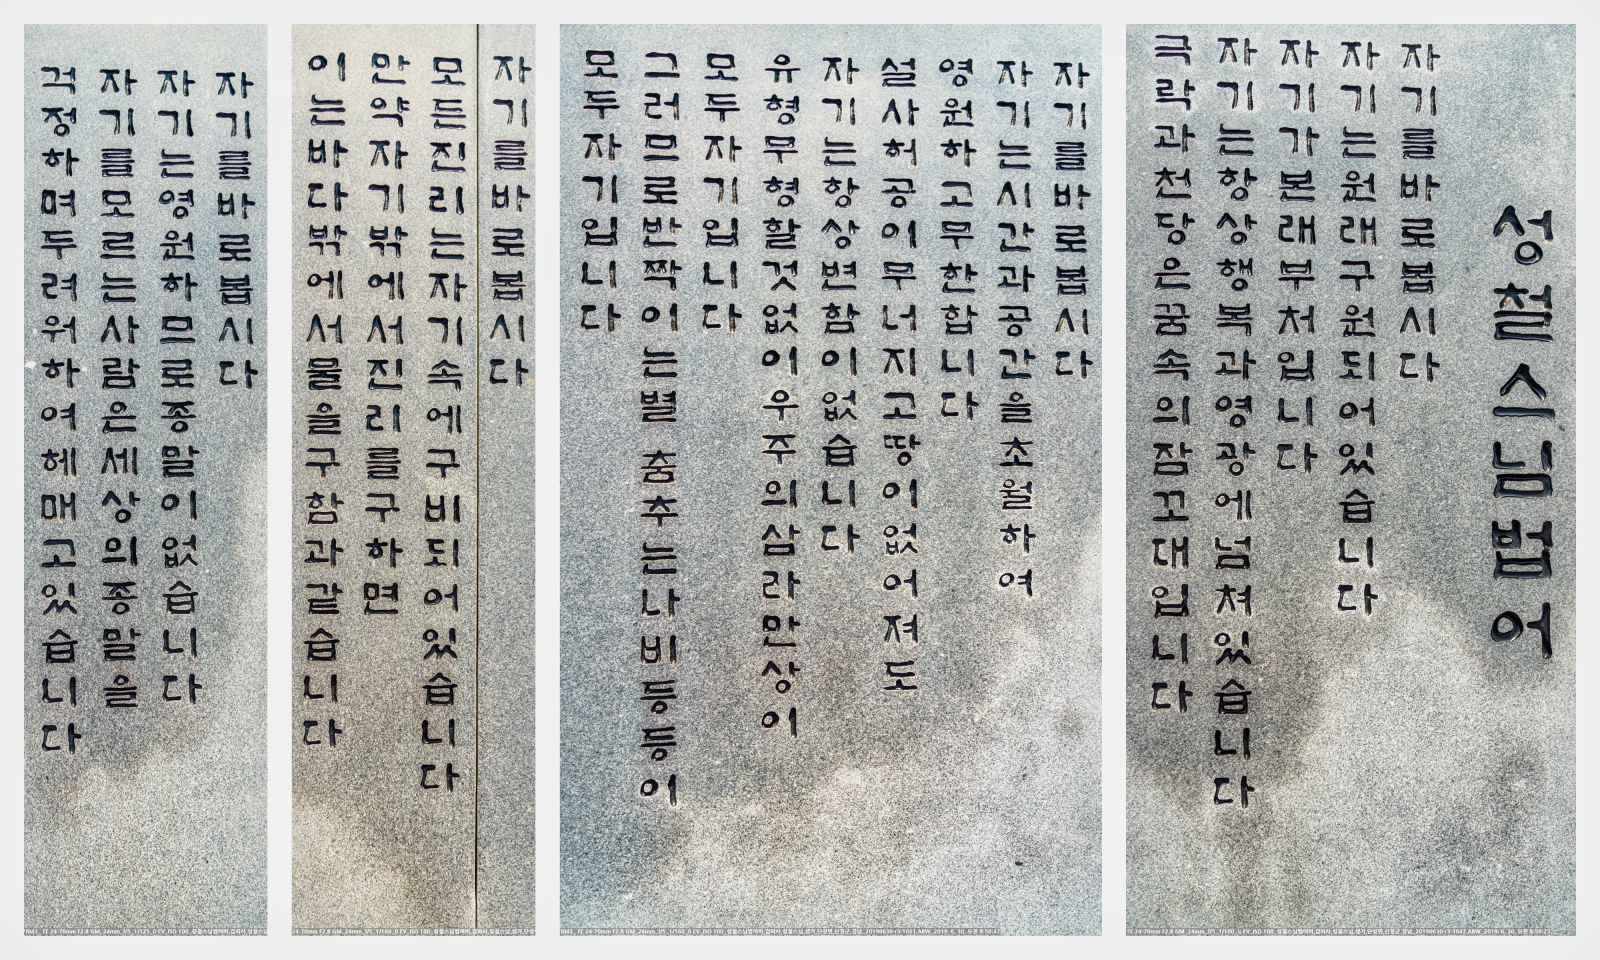 성철스님법어
자기를바로봅시다
자기는원래구원되어있습니다
자기가본래부처입니다
자기는항상행복과영광에넘쳐있습니다
극락과천당은꿈속의잠꼬대입니다
자기를바로봅시다
자기는시간과공간을초월하여
영원하고무한합니다
설사허공이무너지고땅이없어져도
자기는항상변함이없습니다
유형무형할것없이우주의삼라만상이
모두자기입니다
그러므로반짝이는별 춤추는나비등등이
모두자기입니다
자기를바로봅시다
모든진리는자기속에구비되어있습니다
만약자기밖에서진리를구하면
이는바다밖에서물을구함과같습니다
자기를바로봅시다
자기는영원하므로종말이없습니다
자기를모르는사람은세상의종말을
걱정하며두려워하여헤매고있습니다